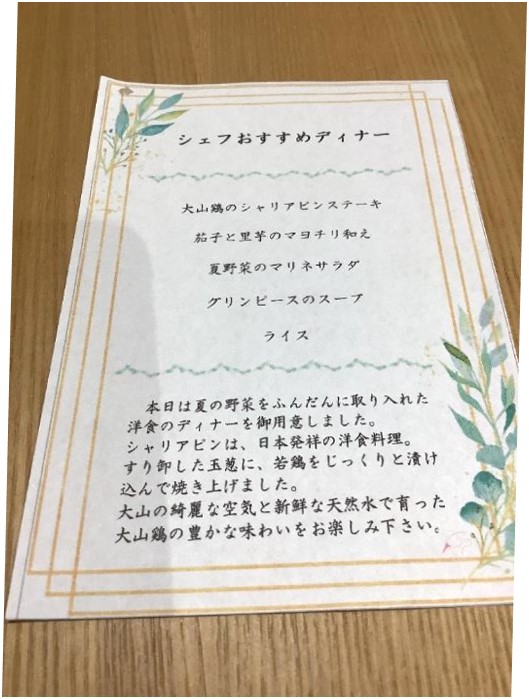 シェフおすすめディナー
大山鶏のシャリアピンステーキ
茄子と里芋のマヨチリ和え
夏野菜のマリネサラダ
グリンピースのスープ
ライス
本日は夏の野菜をふんだんに取り入れた
洋食のディナーを御用意しました。
シャリアピンは、日本発祥の洋食料理。
すり卸した玉葱に、若鶏をじっくりと漬け
込んで焼き上げました。
大山の綺麗な空気と新鮮な天然水で育った
大山鶏の豊かな味わいをお楽しみ下さい。